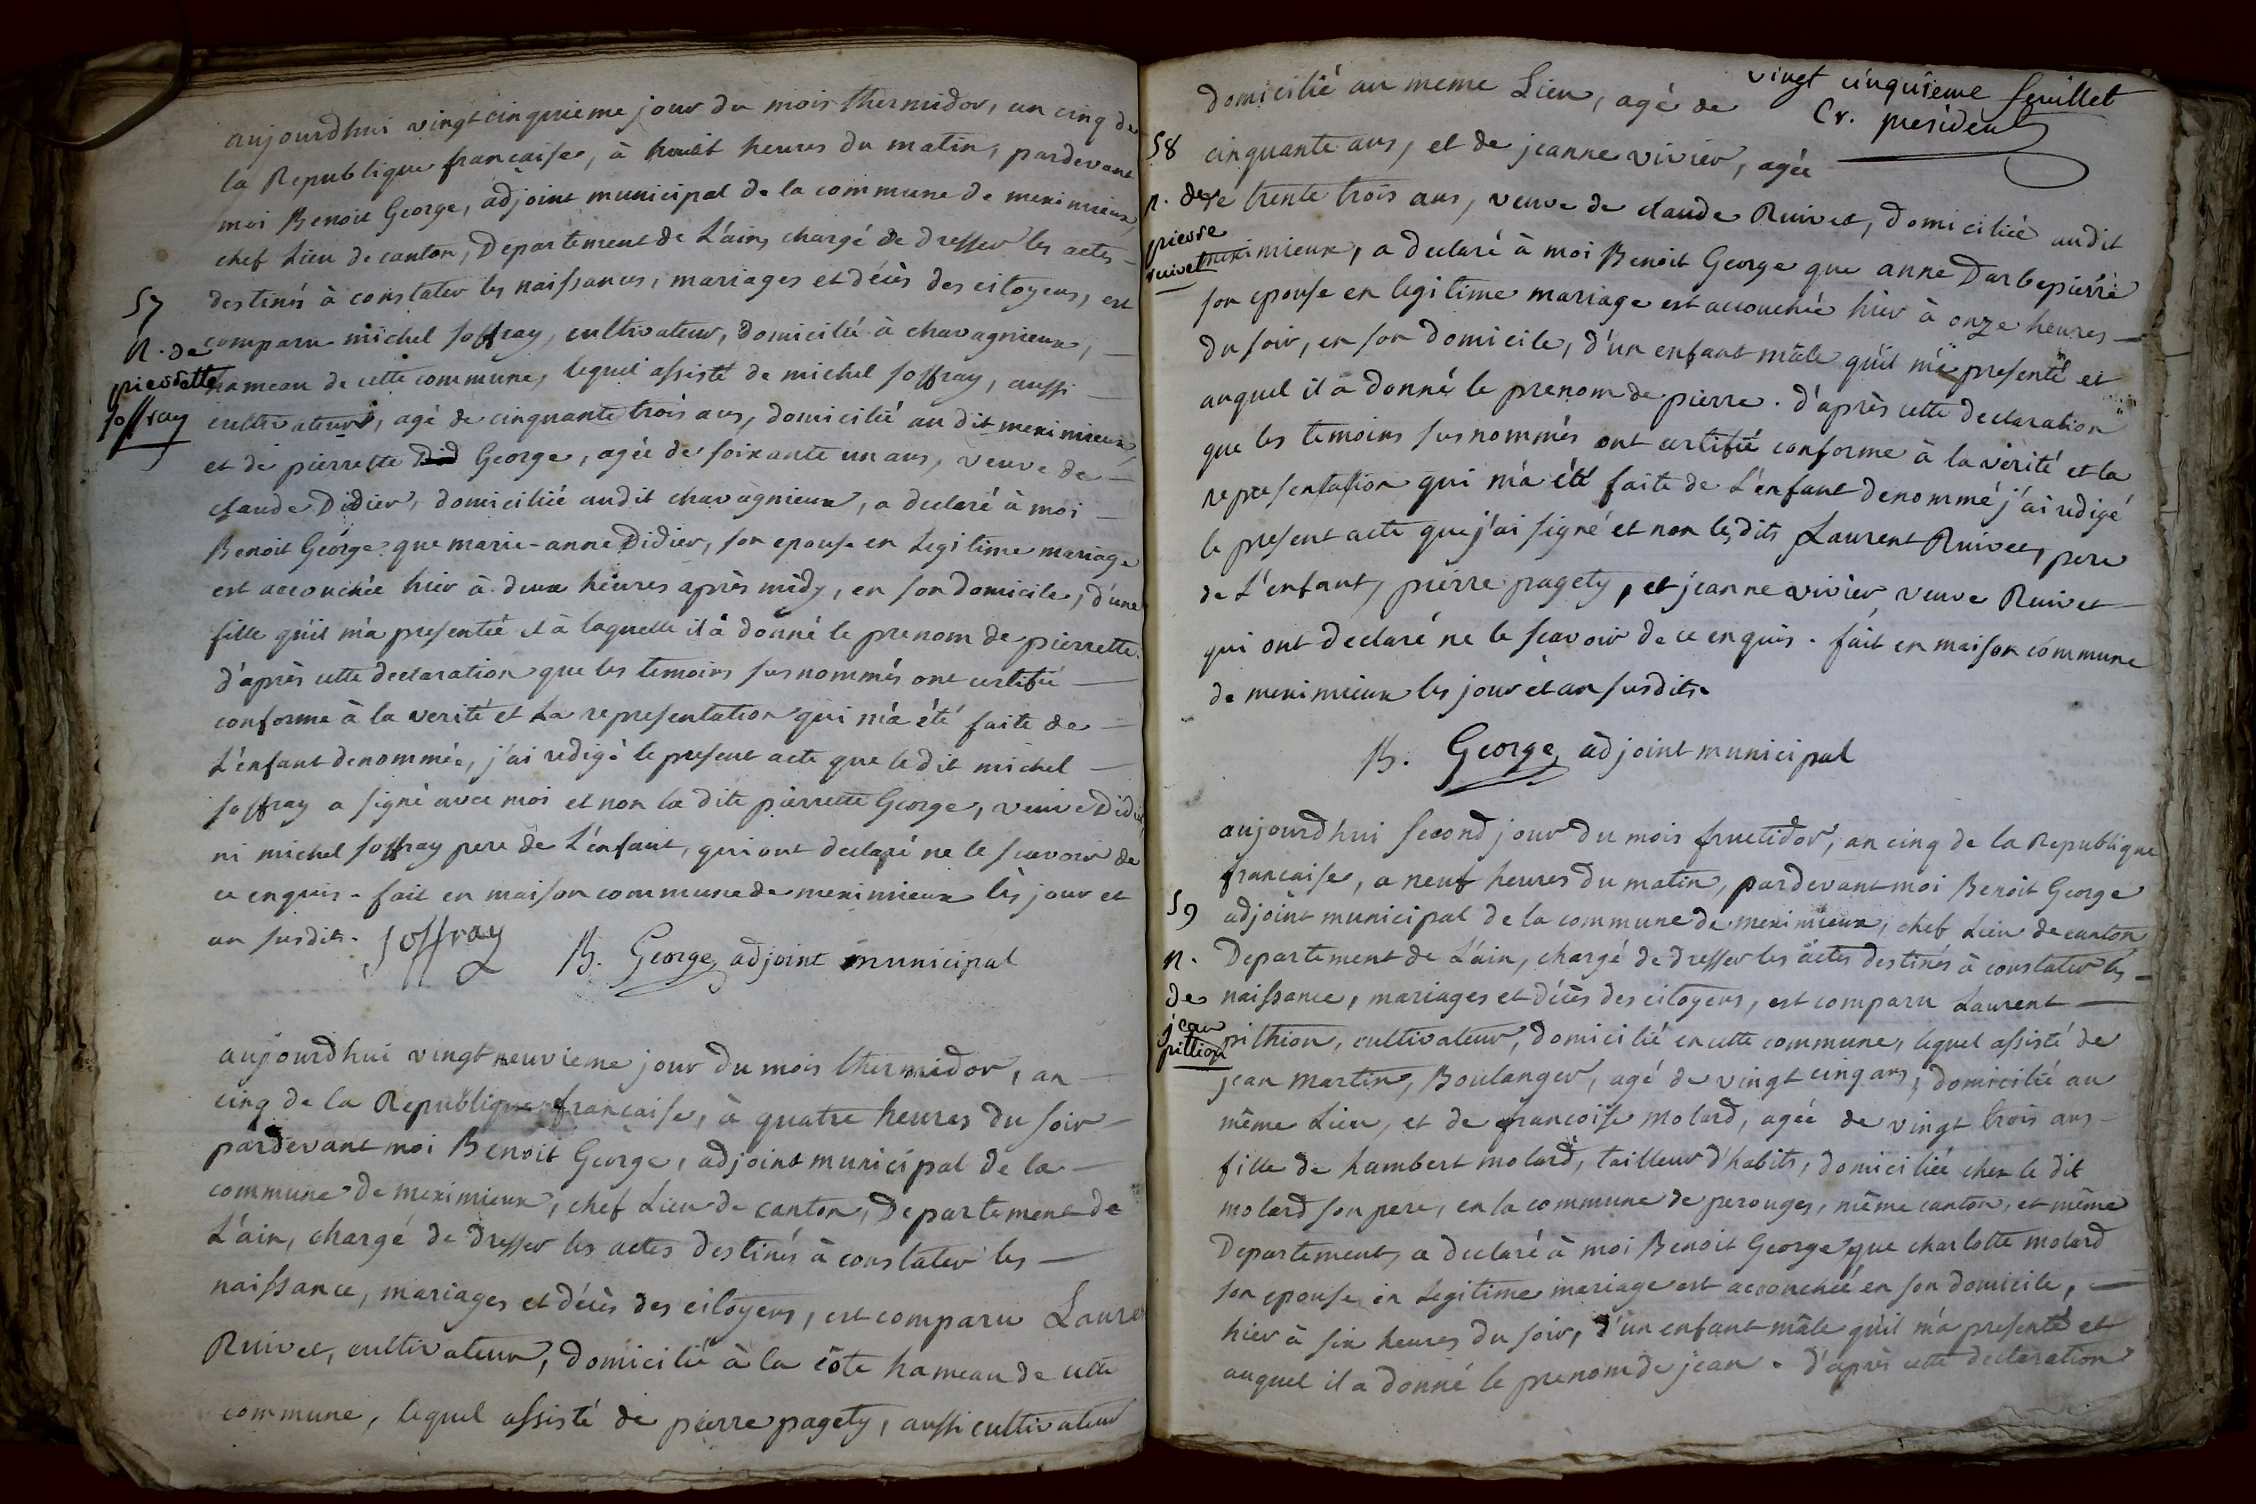 aujourdhui vingt cinquieme jour du mois thermidor, an cinq de
la Republique francaise, à huit heures du matin, pardevant
moi Benoit George, adjoint municipal de la commune de meximieux,
chef Lieu de canton, Departement de L'ain, chargé de dresser les actes
57
destinés à constater les naissances, mariages et décès des citoyens, est
n. de
comparu michel soffray, cultivateur, domicilié à chavagnieux,
pierrette
hameau de cette commune, lequel assisté de michel soffray, aussi
soffray
cultivateur, agé de cinquante trois ans, domicilié au dit meximieux,
et de pierrette Did George, agée de soixante un ans, veuve de
claude Didier, domiciliée audit chavagnieux, a declaré à moi
Benoit George que marie-anne Didier, son epouse en Legitime mariage
est accouchée hier à deux heures après midy, en son domicile, d'une
fille qu'il m'a presenté et à laquelle il a donné le prenom de pierrette.
d'après cette declaration que les temoins susnommés ont certifié
conforme à la verité et La representation qui m'a été faite de
L'enfant denommée, j'ai redigé le present acte que le dit michel
soffray a signé avec moi et non la dite pierrette George, veuve Didier
ni michel soffray pere de L'enfant, qui ont declaré ne le scavoir de
ce enquis. fait en maison commune de meximieux les jour et
an susdits. Soffray B. George, adjoint municipal
aujourdhui vingt neuvieme jour du mois thermidor, an
cinq de la Republique francaise, à quatre heures du soir
pardevant moi Benoit George, adjoint municipal de la
commune de meximieux, chef Lieu de canton, Departement de
L'ain, chargé de dresser les actes destinés à constater les
naissance, mariages et décès des citoyens, est comparu Laurent
Ruivet, cultivateur, domicilié à la côte hameau de cette
commune, lequel assisté de pierre pagety, aussi cultivateur
vingt cinquieme feuillet
Cr. president
domicilié au meme Lieu, agé de
58
cinquante ans, et de jeanne vivier, agée
n. de
de trente trois ans, veuve de claude Ruivet, domiciliée audit
pierre
ruivet
meximieux, a declaré à moi Benoit George que anne Darbepierre
son epouse en legitime mariage est accouchée hier à onze heures
du soir, en son domicile, d'un enfant mâle qu'il m'a presenté et
auquel il a donné le prenom de pierre. d'après cette declaration
que les temoins susnommés ont certifié conforme à la verité et la
representation qui m'a été faite de L'enfant denommé j'ai redigé
le present acte que j'ai signé et non les dits Laurent Ruivet, pere
de L'enfant, pierre pagety, et jeanne vivier veuve Ruivet
qui ont declaré ne le scavoir de ce enquis. fait en maison commune
de meximieux les jour et an susdits.
B. George, adjoint municipal
aujourdhui second jour du mois fructidor, an cinq de la Republique
francaise, a neuf heures du matin, pardevant moi Benoit George
59
adjoint municipal de la commune de meximieux, chef Lieu de canton
n.
Departement de L'ain, chargé de dresser les actes destinés à constater les
de
naissance, mariages et décès des citoyens, est comparu Laurent
jean
pittion
pithion, cultivateur, domicilié en cette commune, lequel assisté de
jean martin, Boulanger, agé de vingt cinq ans, domicilié au
même Lieu, et de francoise molard, agée de vingt trois ans
fille de hambert molard, tailleur d'habits, domiciliée chex le dit
molard son pere, en la commune de perouges, même canton, et même
Departement, a declaré à moi Benoit George, que charlotte molard
son epouse en Legitime mariage est accouchée en son domicile,
hier à six heures du soir, d'un enfant mâle qu'il m'a presenté et
auquel il a donné le prenom de jean. d'après cette declaration